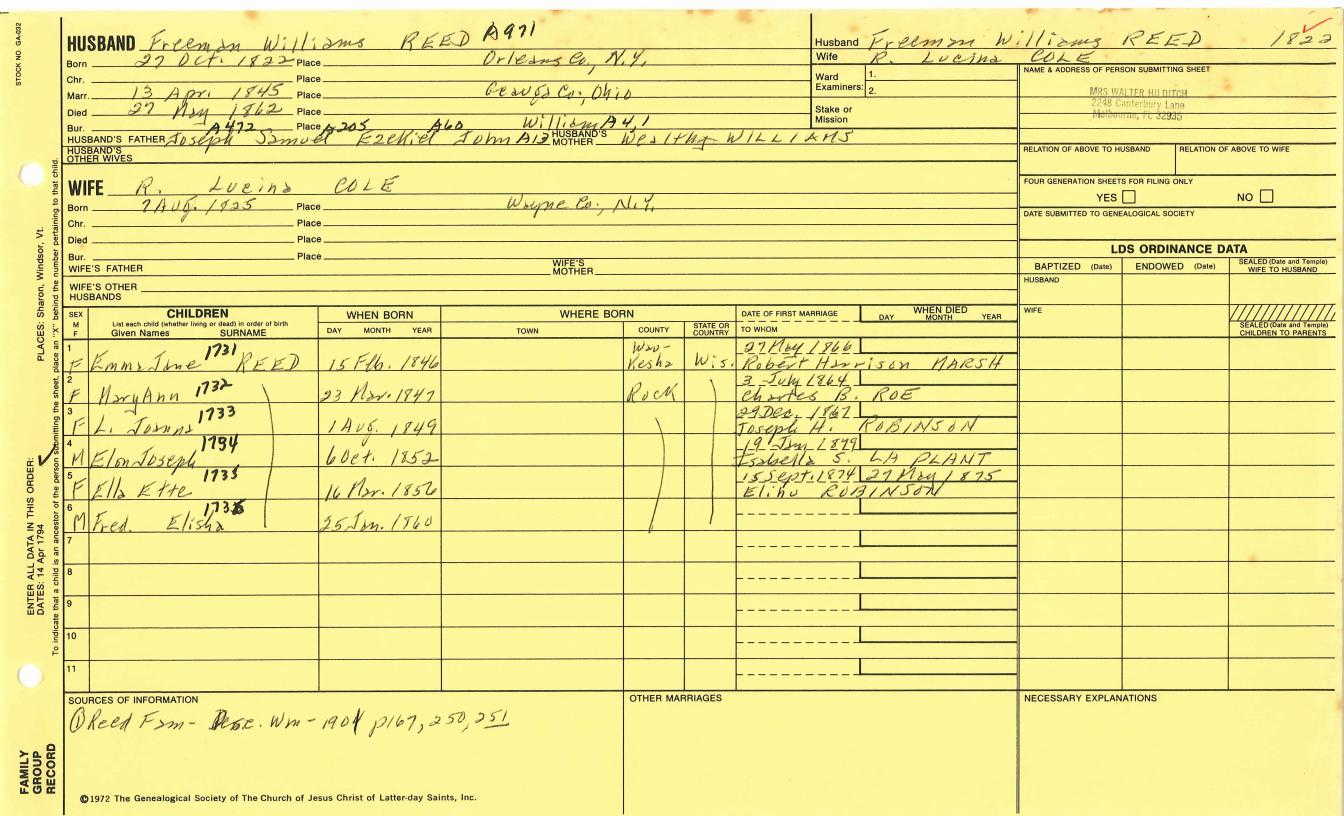 STOCK NO GA-092
HUSBAND Freeman Williams REED A971
Born 27 Oct. 1822 Place Orleans Co., N.Y.
Chr. Place
Marr. 13 Apr. 1845 Place Geauga Co., Ohio
Died 27 May 1862 Place
Bur. Place
A472 A205 A60 William A4,1
HUSBAND'S FATHER Joseph Samuel Ezekiel John A13 HUSBAND'S MOTHER Wealthy WILLIAMS
HUSBAND'S OTHER WIVES
Husband Freeman Williams REED 1822
Wife R. Lucina COLE
Ward Examiners: 1.
2.
Stake or Mission
NAME & ADDRESS OF PERSON SUBMITTING SHEET
MRS WALTER HILDITCH
2248 Canterbury Lane
Melbourne, FL 32935
RELATION OF ABOVE TO HUSBAND RELATION OF ABOVE TO WIFE
FOUR GENERATION SHEETS FOR FILING ONLY
YES NO
DATE SUBMITTED TO GENEALOGICAL SOCIETY
WIFE R. Lucina COLE
Born 7 Aug. 1825 Place Wayne Co., N.Y.
Chr. Place
Died Place
Bur. Place
WIFE'S FATHER WIFE'S MOTHER
WIFE'S OTHER HUSBANDS
LDS ORDINANCE DATA
BAPTIZED (Date) ENDOWED (Date) SEALED (Date and Temple) WIFE TO HUSBAND
HUSBAND
WIFE
SEALED (Date and Temple) CHILDREN TO PARENTS
SEX M F CHILDREN WHEN BORN WHERE BORN DATE OF FIRST MARRIAGE WHEN DIED
List each child (whether living or dead) in order of birth
Given Names SURNAME DAY MONTH YEAR TOWN COUNTY STATE OR COUNTRY TO WHOM DAY MONTH YEAR
1 1731 Wau- 27 May 1866
F Emma Jane REED 15 Feb. 1846 kesha Wis. Robert Harrison MARSH
2 1732 3 July 1864
F Mary Ann 23 Mar. 1847 Rock Charles B. ROE
3 1733 29 Dec. 1867
F L. Joanna 1 Aug. 1849 Joseph H. ROBINSON
4 1734 19 Jan 1879
M Elon Joseph 6 Oct. 1852 Isabella S. LA PLANT
5 1735 15 Sept. 1874 27 May 1875
F Ella Ette 16 Mar. 1856 Elihu ROBINSON
6 1736
M Fred. Elisha 25 Jan. 1860
7
8
9
10
11
SOURCES OF INFORMATION
① Reed Fam- Desc. Wm- 1901 p167, 250, 251
OTHER MARRIAGES
NECESSARY EXPLANATIONS
©1972 The Genealogical Society of The Church of Jesus Christ of Latter-day Saints, Inc.
ENTER ALL DATA IN THIS ORDER:
DATES: 14 Apr 1794 PLACES: Sharon, Windsor, Vt.
To indicate that a child is an ancestor of the person submitting the sheet, place an "X" behind the number pertaining to that child.
FAMILY
GROUP
RECORD